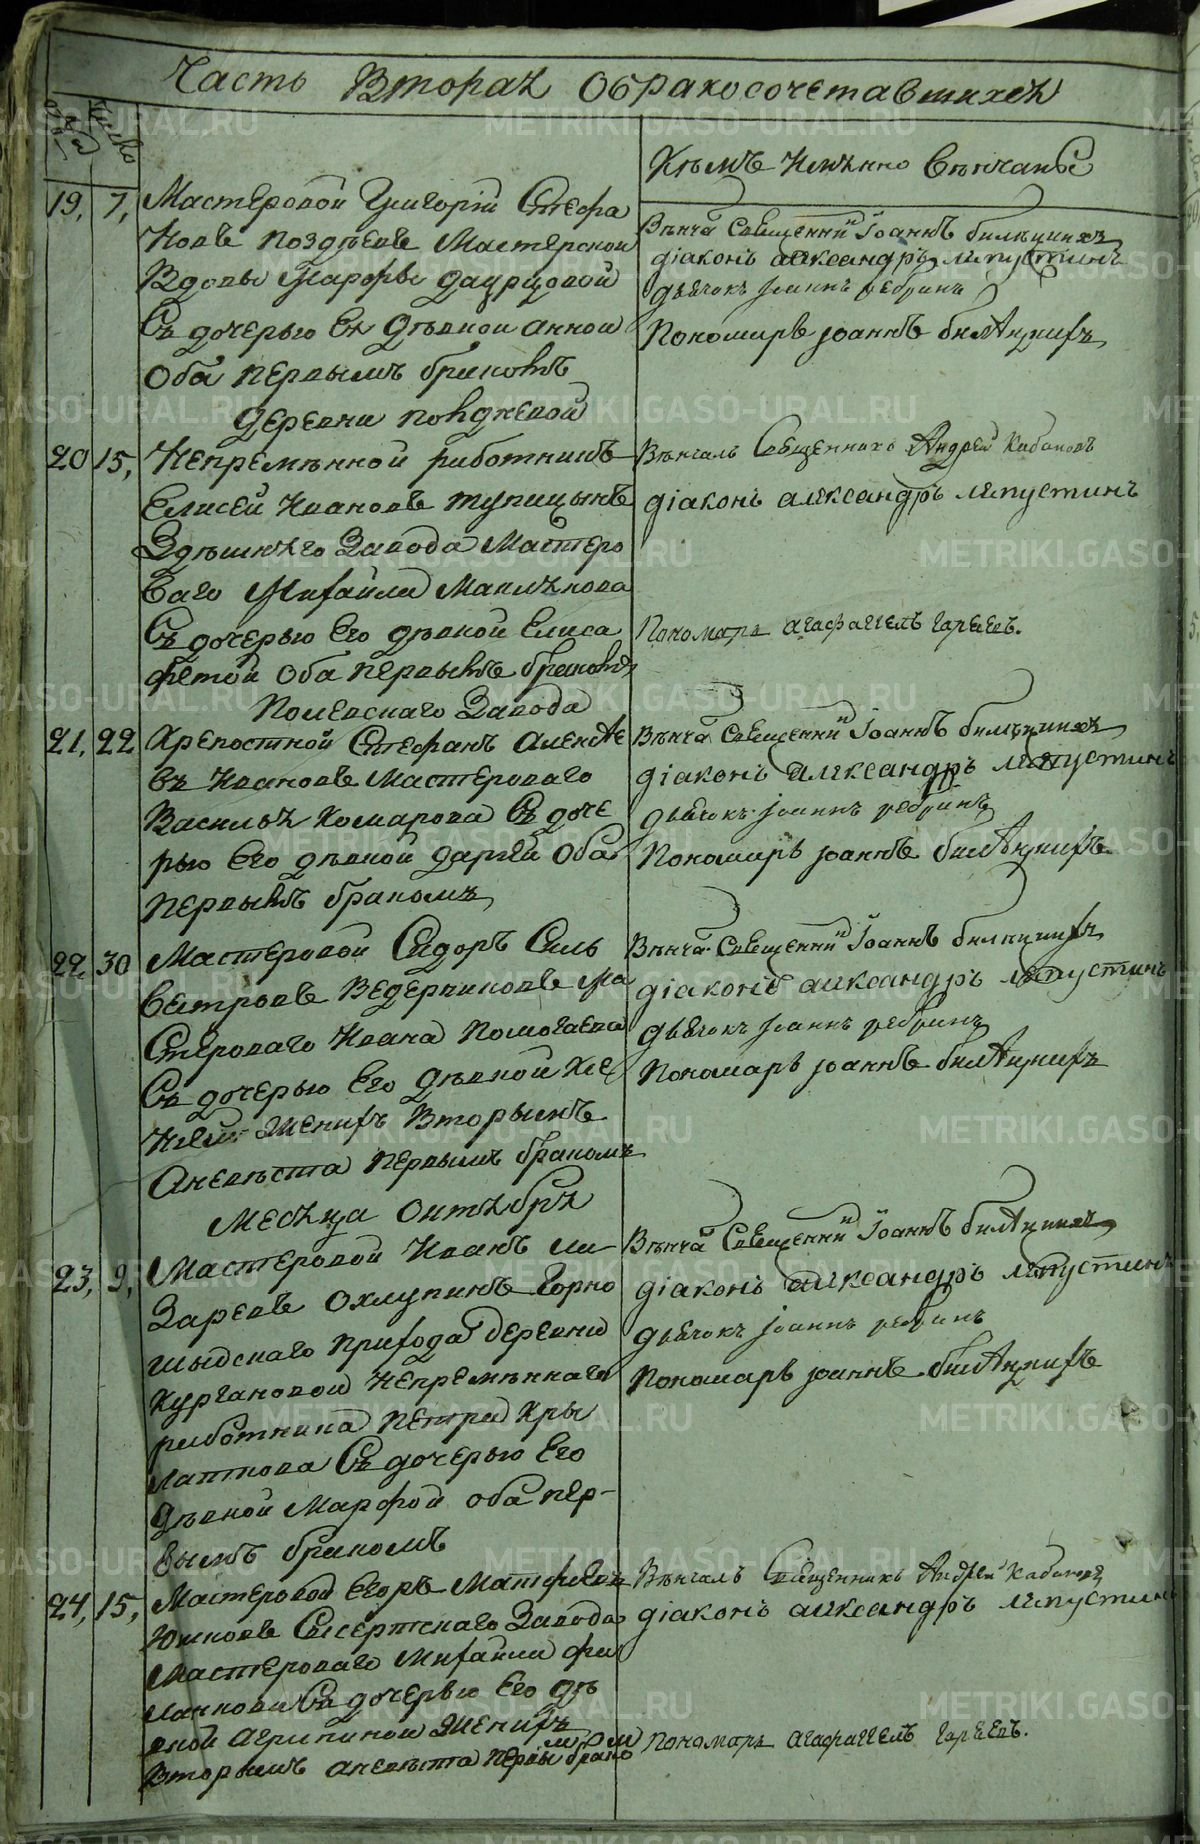 Часть Вторая О бракосочетавшихся
Число
Кѣмъ имянно вѣнчаны
19, 7, Мастеровой Григорій Стефа
новъ Поздѣевъ Мастерской
Вдовы Марфы
Съ дочерью Ея дѣвкой Анной
Оба первымъ бракомъ
Вѣнча Священни Іоаннъ
діаконъ александръ лепустинъ
дьячокъ Іоаннъ ребринъ
Пономарь Іоаннъ
деревни
20 15, Непремѣнной работникъ
Елисей Ивановъ тупицынъ
Здѣшняго Завода Мастеро
ваго Михайла
Съ дочерью Его дѣвкой Елиса
фетой Оба первымъ бракомъ
Вѣнчалъ Священникъ Андрей Кабаковъ
діаконъ александръ лепустинъ
Пономарь агафаггелъ
Полевскаго Завода
21, 22 Крепостной Стефанъ Алексѣе
въ Ивановъ Мастероваго
Василья Комарова Съ доче
рью Его дѣвкой дарьей Оба
первымъ бракомъ
Вѣнча Священни Іоаннъ
діаконъ александръ лепустинъ
дьячокъ Іоаннъ ребринъ
Пономарь Іоаннъ
22, 30 Мастеровой Сидоръ Силь
вестровъ Ведерниковъ Ма
стероваго Ивана Помогаева
Съ дочерью Его дѣвкой Ксе
ніей Женихъ Вторымъ
Аневѣста первымъ бракомъ
Вѣнча Священни Іоаннъ
діаконъ александръ лепустинъ
дьячокъ Іоаннъ ребринъ
Пономарь Іоаннъ
Месяца Октября
23, 9, Мастеровой Иванъ ли
заревъ Охлупинъ Горно
шыдскаго прихода деревни
Кургановой Непремѣннаго
работника петра Кры
латкова Съ дочерью Его
дѣвкой Марфой оба пер-
вымъ бракомъ
Вѣнча Священни Іоаннъ
діаконъ александръ лепустинъ
дьячокъ Іоаннъ ребринъ
Пономарь Іоаннъ
24, 15, Мастеровой Егоръ Матфеевъ
Южковъ Сысертскаго Завода
Мастероваго Михайла фи
Съ дочерью Его дѣ
вкой агрипиной Женихъ
Вторымъ аневѣста первымъ бракомъ
Вѣнчалъ Священникъ Андрей Кабаковъ
діаконъ александръ лепустинъ
Пономарь агафаггелъ
METRIKI.GASO-URAL.RU